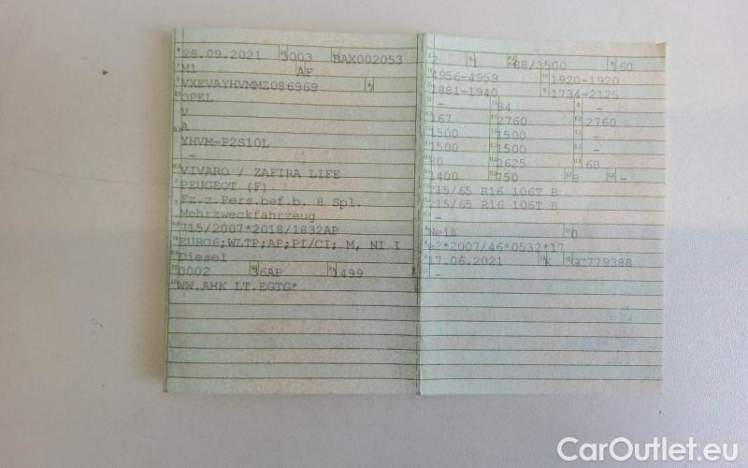 28.09.2021 3003 BAX002053
M1 AF
VXEVAYHVMMZ086969
OPEL
V
A
YHVM-P2S10L
-
VIVARO / ZAFIRA LIFE
PEUGEOT (F)
Fz.z.Pers.bef.b. 8 Spl.
Mehrzweckfahrzeug
715/2007*2018/1832AP
EURO6;WLTP;AP;PI/CI; M, N1 I
Diesel
0002 36AP 1499
WW.AHK LT.EGTG*
2 1 88/3500 60
4956-4959 1920-1920
1881-1940 1734-2125
- 94 -
167 2760 2760
1500 1500 -
1500 1500 -
80 2625 68
1400 750 9 -
215/65 R16 106T B
215/65 R16 106T B
-
Weiß 0
e2*2007/46*0532*17
17.06.2021 K
-
CarOutlet.eu